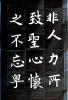 非人力所
致聖心懷
之不忘粤